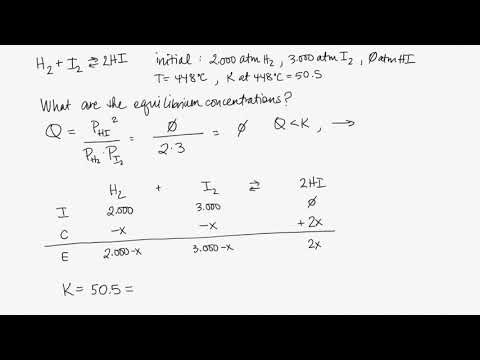 H₂ + I₂ ⇌ 2HI initial : 2.000 atm H₂ , 3.000 atm I₂ , ∅ atm HI
T= 448°C , K at 448°C = 50.5
What are the equilibrium concentrations?
Q = P_HI² / P_H₂ · P_I₂ = ∅ / 2·3 = ∅ Q < K , →
H₂ + I₂ ⇌ 2HI
I 2.000 3.000 ∅
C -x -x + 2x
E 2.000-x 3.000-x 2x
K = 50.5 =